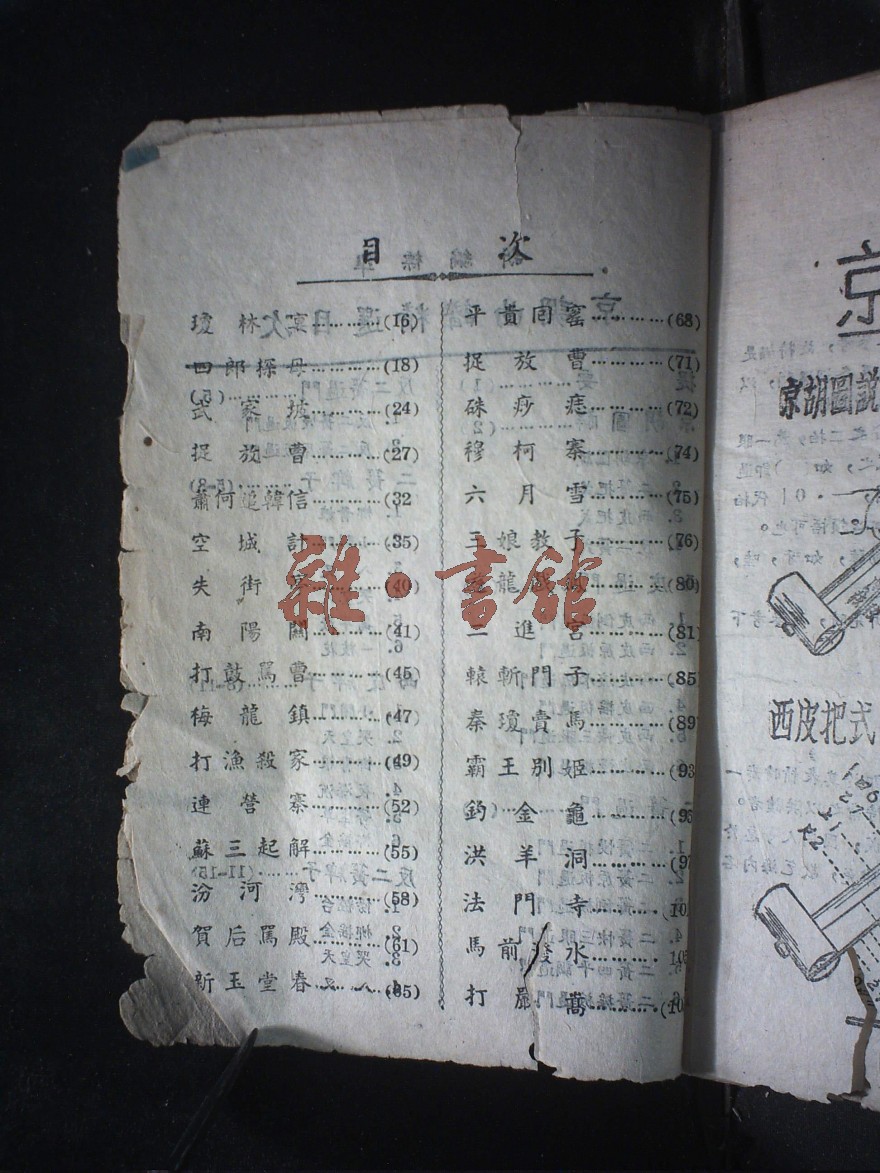 目次
瓊林宴…………(16)
四郎探母…………(18)
武家坡…………(24)
捉放曹…………(27)
蕭何追韓信…………(32
空城計…………(35)
失街亭…………(40)
南陽關…………(41)
打鼓罵曹…………(45)
梅龍鎮…………(47)
打漁殺家…………(49)
連營寨…………(52)
蘇三起解…………(55)
汾河灣…………(58)
賀后罵殿…………(61)
新玉堂春…………(65)
平貴回窰…………(68)
捉放曹…………(71)
硃痧痣…………(72)
穆柯寨…………(74)
六月雪…………(75)
三娘教子…………(76)
龍戲鳳…………(80)
二進宮…………(81)
轅斬門子…………(85
秦瓊賣馬…………(89)
霸王別姬…………(93
釣金龜…………(95
洪羊洞…………(97
法門寺…………(10
馬前潑水…………10
打嚴嵩…………(10
雜·書舘
京
京胡圖説
西皮把式